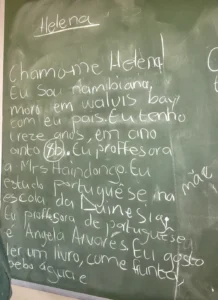 Helena
Chamo-me Helena
Eu sou namibiana,
moro em walvis bay
com eu pais. Eu tenho
treze anos, em ano
oito (b). Eu proffesora
a Mrs Haindongo. Eu
estudo portuguêse na
escola da Duinesia,
Eu proffesora de portuguese
é Angela Alvares. Eu gosto
ler um livro, come
bebo água e
mãe